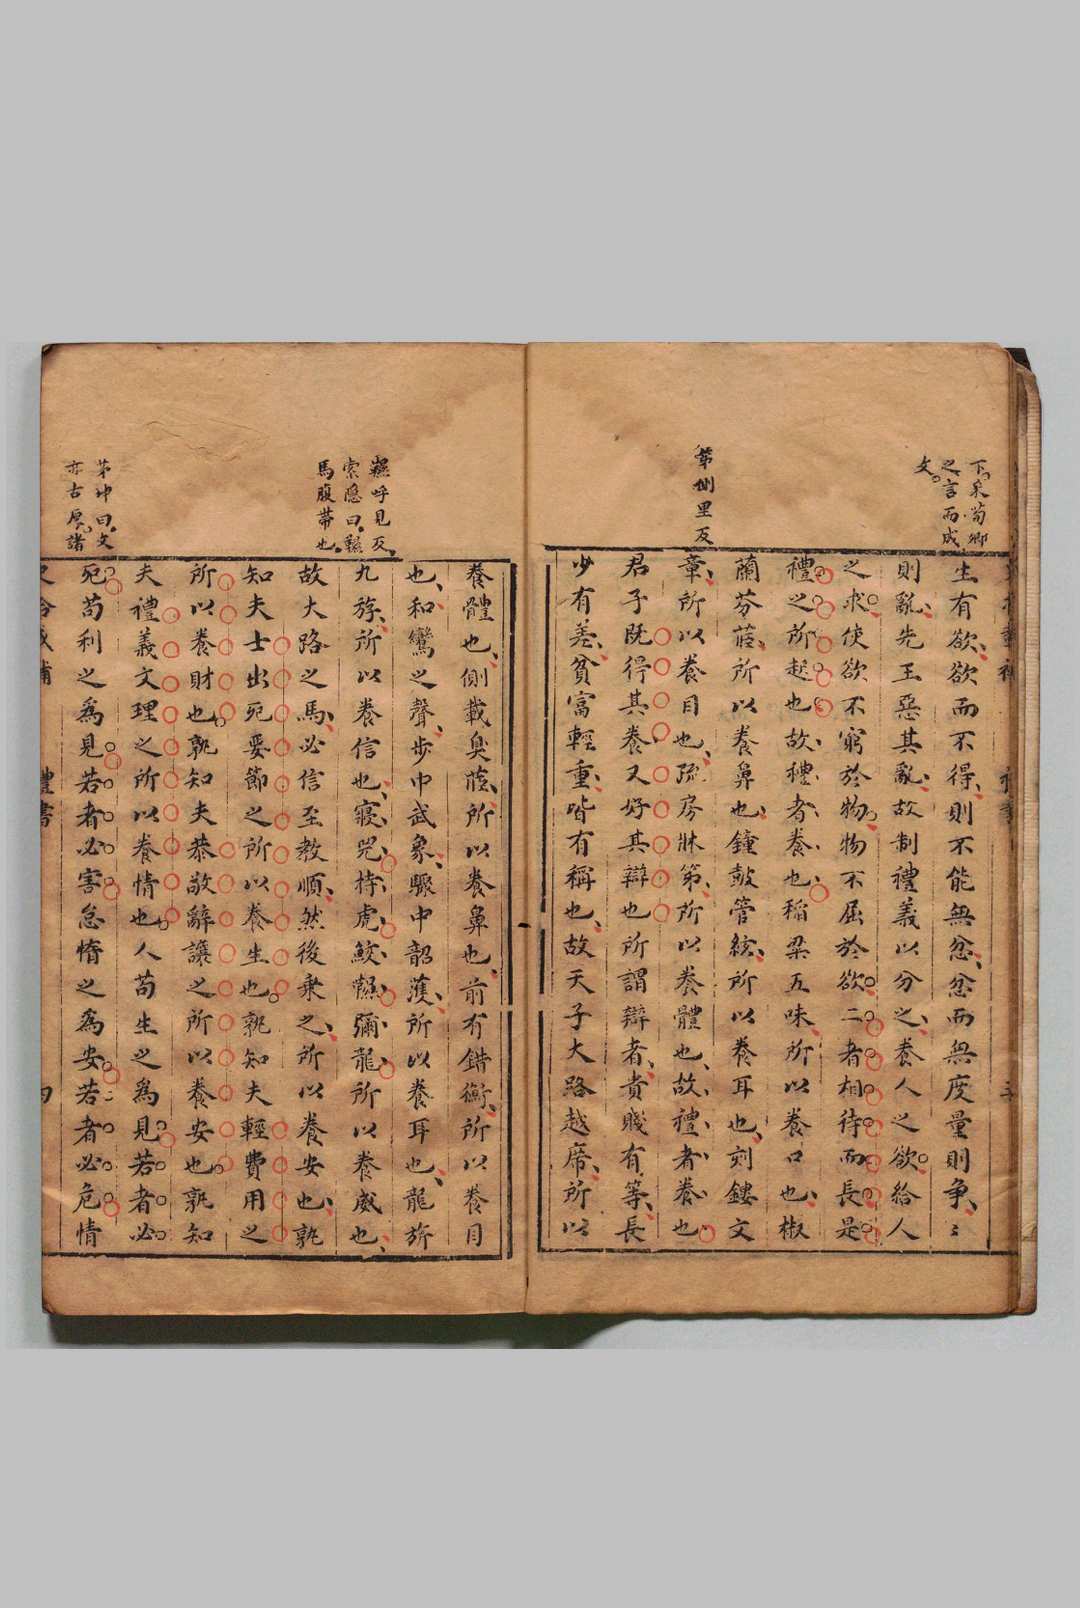 下采荀卿
之言而成
文
生有欲欲而不得則不能無忿忿而無度量則争〻
則亂先王惡其亂故制禮義以分之養人之欲給人
之求使欲不窮於物物不屈於欲二者相待而長是
禮之所起也故禮者養也稲粱五味所以養口也椒
蘭芬茝所以養鼻也鐘鼓管絃所以養耳也刻鏤文
第側里反
章所以養目也疏房牀第所以養體也故禮者養也
君子既得其養又好其辯也所謂辯者貴賤有等長
少有差貧富輕重皆有稱也故天子大路越席所以
養體也側載臭茝所以養鼻也前有錯衡所以養目
也和鸞之聲步中武象驟中韶濩所以養耳也龍旂
韅呼見反
索隱曰韅
馬腹帶也
九旒所以養信也寢兕持虎鮫韅彌龍所以養威也
故大路之馬必信至教順然後乗之所以養安也孰
知夫士出死要節之所以養生也孰知夫輕費用之
所以養財也孰知夫恭敬辭讓之所以養安也孰知
夫禮義文理之所以養情也人苟生之為見若者必
茅坤曰文
亦古厚諸
死苟利之為見若者必害怠惰之為安若者必危情
禮書